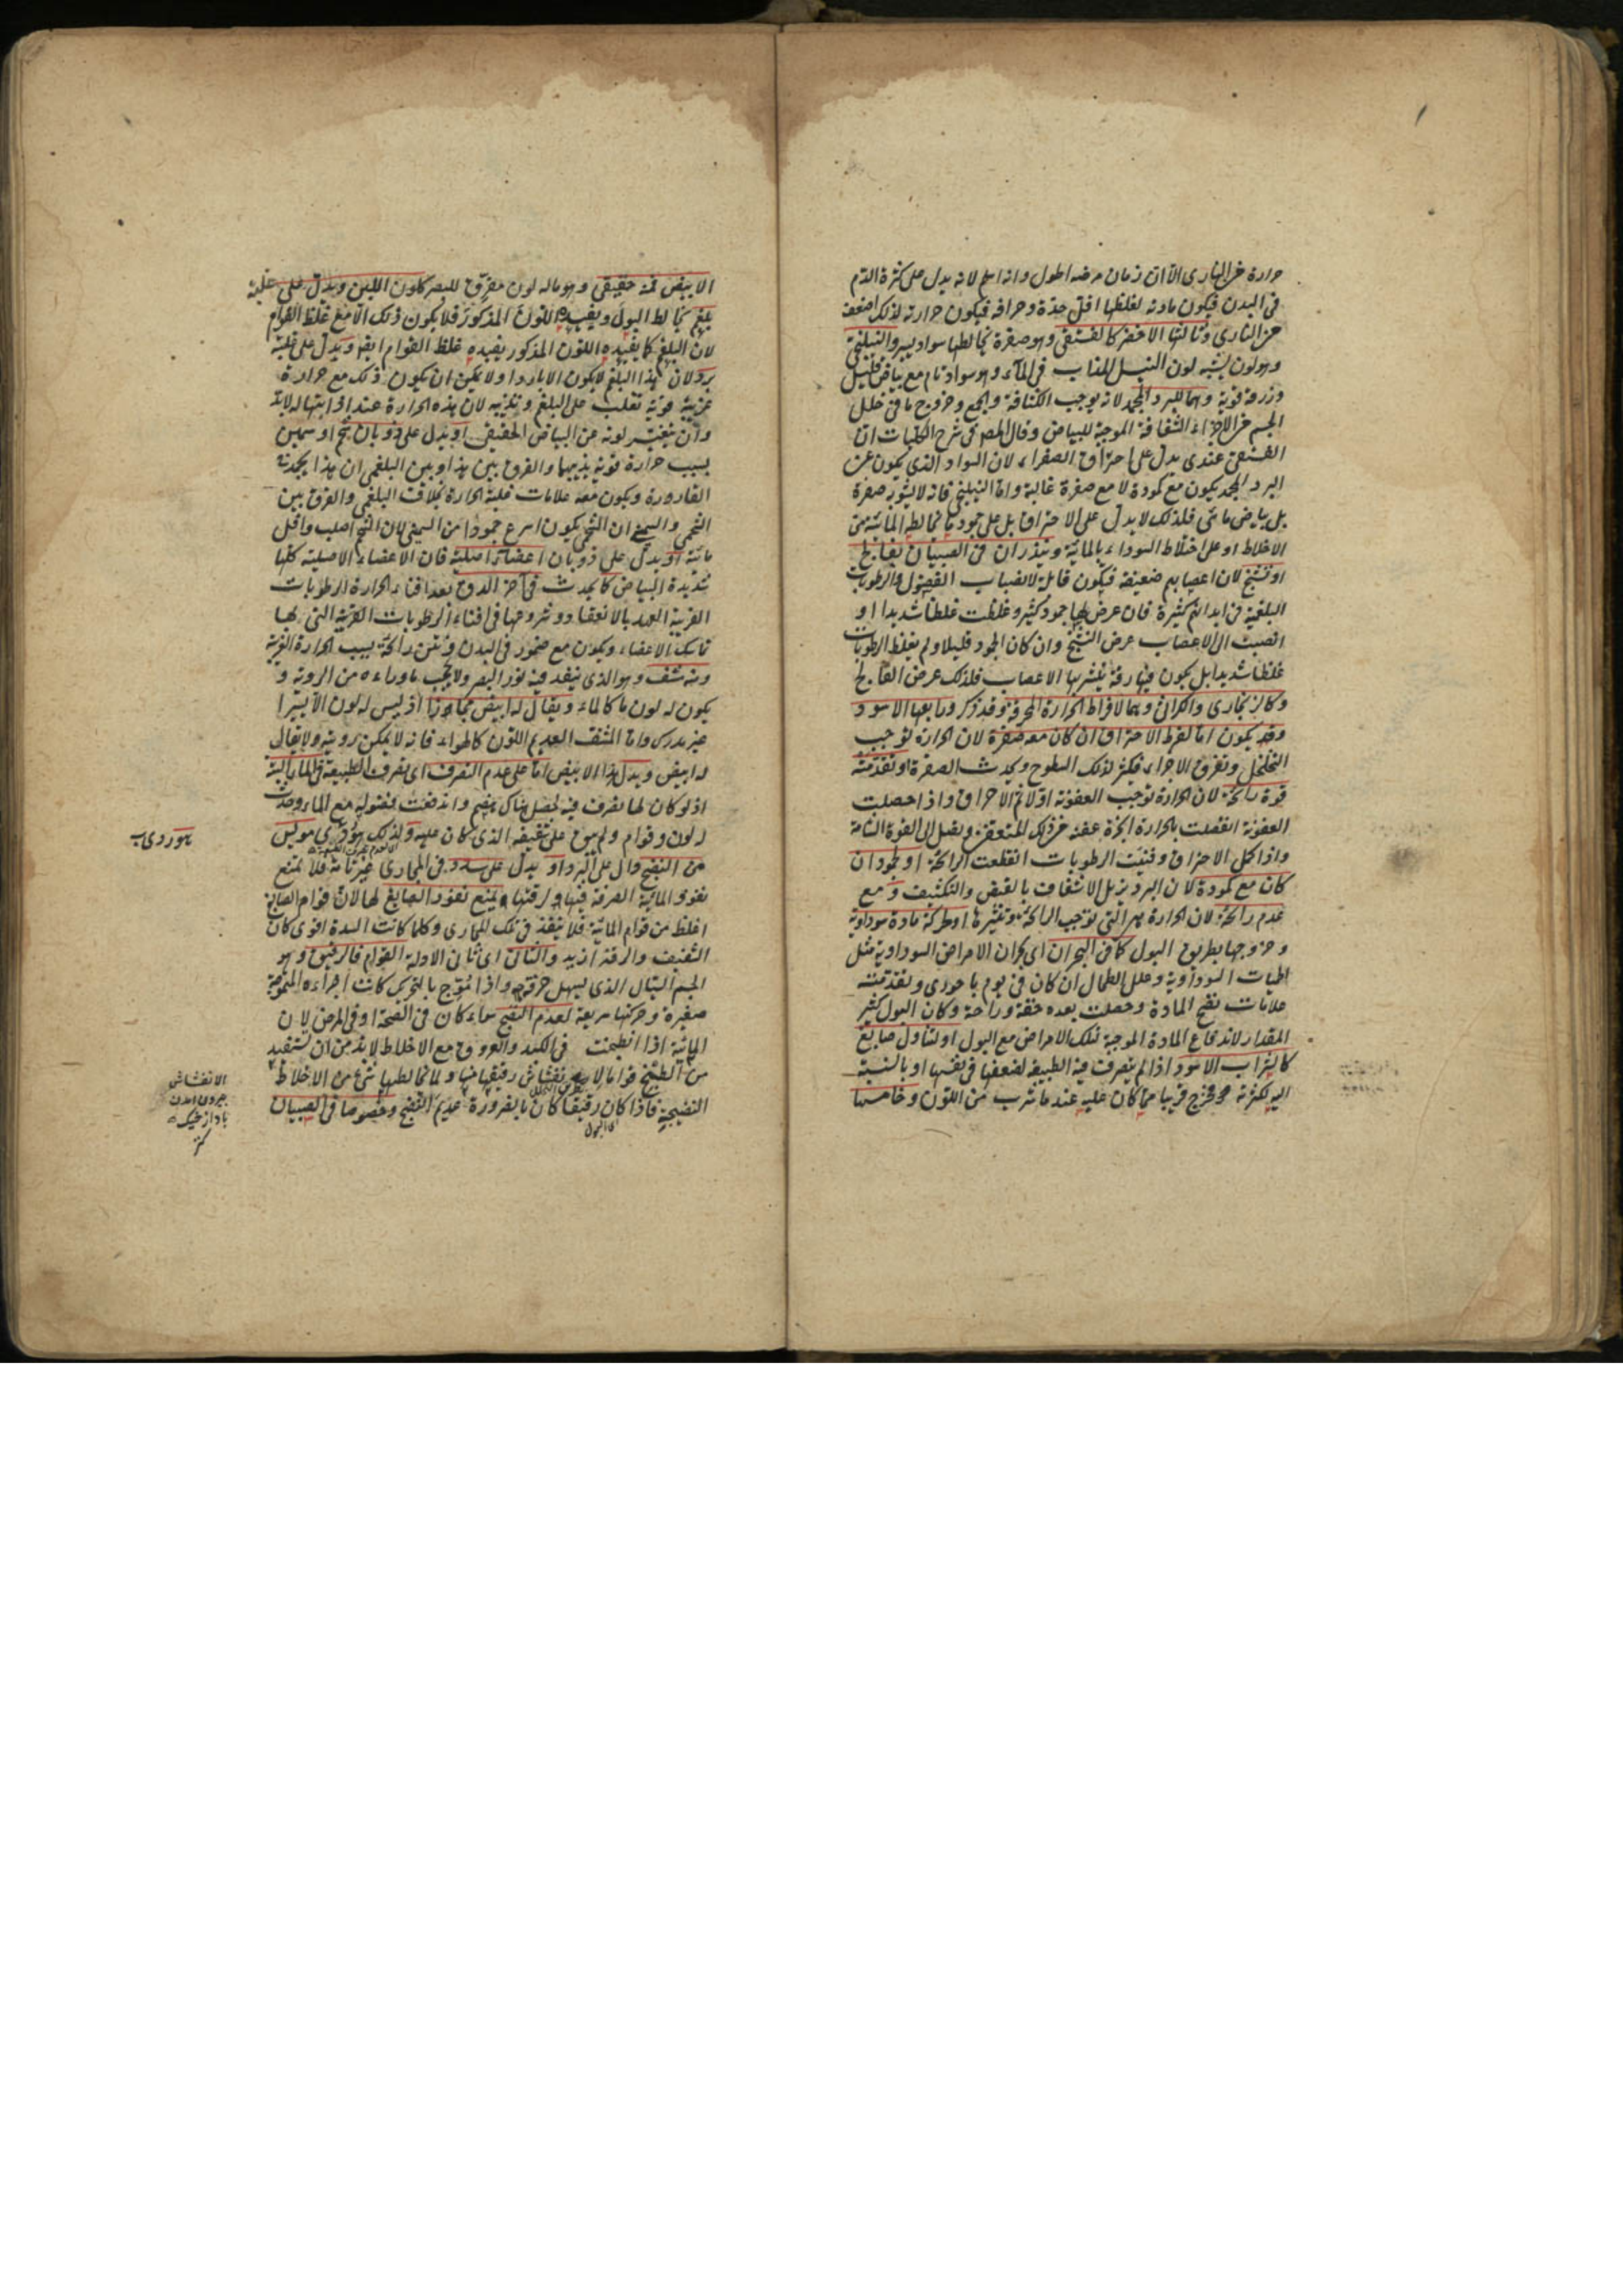 حرارة من النارى الا ان زمان مرضه اطول وانه اسلم لانه يدل على كثرة الدم
فى البدن فيكون مادته لغلظها اقل حدة وحرافة فيكون حرارته لذلك اضعف
من النارى وثالثها الاخضر كالفستقى وهو صفرة يخالطها سواد يسير والنيلنجى
وهو لون يشبه لون النيل المذاب فى الماء وهو سواد تام مع بياض قليل
وزرقة قوية وهما للبرد المجمد لانه يوجب الكثافة والجمع وخروج ما فى خلل
الجسم من الاجزاء الشفافة الموجبة للبياض وقال المصـ فى شرح الكليات اما
الفستقى عندى يدل على احتراق الصفراء لان السواد الذى يكون عن
البرد المجمد يكون مع كمودة لا مع صفرة غالبة واما النيلنجى فانه لا يشوبه صفرة
بل بياض مائى فلذلك لا يدل على الاحتراق بل على جود ما يخالط المائية من
الاخلاط او على اختلاط السوداء بالمائية وينذران فى الصبيان بفالج
او تشنج لان اعصابهم ضعيفة فيكون قابلة لانصباب الفضول والرطوبات
البلغمية فى ابدانهم كثيرة فان عرض لها جمود كثير وغلظت غلظا شديدا او
انصبت الى الاعصاب عرض التشنج وان كان الجمود قليلا ولم يغلظ الرطوبات
غلظا شديدا بل يكون فيها رقة يتشربها الاعصاب فلذلك عرض الفالج
وكالزنجارى والكراثى وهما لافراط الحرارة المحرقة وقد ذكر ورابعها الاسود
وقد يكون اما لفرط الاحتراق ان كان معه صفرة لان الحرارة توجب
التخلخل وتفرق الاجزاء فيكثر لذلك السطوح ويحدث الصفرة او تقدمته
قوة رائحة لان الحرارة توجب العفونة اولا ثم الاحراق واذا حصلت
العفونة انفصلت بالحرارة ابخرة عفنة من ذلك المتعفن ويصل الى القوة الشامة
واذا كمل الاحتراق وفنيت الرطوبات انقطعت الرائحة او لجمود ان
كان مع كمودة لان البرد يزيل الاشفاف بالقبض والتكثيف ومع
عدم رائحة لان الحرارة هى التى توجب الرائحة وتثيرها او لحركة مادة سوداوية
وخروجها بطريق البول كما فى البحران اى بحران الامراض السوداوية مثل
الحميات السوداوية وعلل الطحال ان كان فى يوم باحورى وتقدمته
علامات نضج المادة وحصلت بعده خفة وراحة وكان البول كثير
المقدار لاندفاع المادة الموجبة لتلك الامراض مع البول او لتناول صابغ
كالشراب الاسود اذا لم يتصرف فيه الطبيعة لضعفها فى نفسها او بالنسبة
اليه لكثرته فخرج قريبا مما كان عليه عند ما شرب من اللون وخامسها
الابيض فمنه حقيقى وهو ما له لون مفرق للبصر كلون اللبن ويدل على غلبة
بلغم يخالط البول ويفيده اللون المذكور فلا يكون ذلك الا مع غلظ القوام
لان البلغم كما يفيده اللون المذكور يفيده غلظ القوام ايضا ويدل على غلبة
برد لان هذا البلغم لا يكون الا باردا ولا يمكن ان يكون ذلك مع حرارة
غريبة قوية تغلب على البلغم وتذيبه لان هذه الحرارة عند اذابتها له لابد
وان يتغير لونه عن البياض الحقيقى او يدل على ذوبان شحم او سمين
بسبب حرارة قوية يذيبهما والفرق بين هذا وبين البلغمى ان هذا يجمد فى
القارورة ويكون معه علامات غلبة الحرارة بخلاف البلغمى والفرق بين
الشحمى والسمينى ان الشحمى يكون اسرع جمودا من السمينى لان الشحم اصلب واقل
مائية او يدل على ذوبان اعضاء اصلية فان الاعضاء الاصلية كلها
شديدة البياض كما يحدث فى آخر الدق بعد افناء الحرارة الرطوبات
القريبة العهد بالانعقاد وشروعها فى افناء الرطوبات الغريزية التى بها
تماسك الاعضاء ويكون مع ضمور فى البدن ونتن رائحة بسبب الحرارة الغريبة
ومنه مشف وهو الذى ينفذ فيه نور البصر ولا يحجب ما وراءه من الروية و
يكون له لون ما كالماء ويقال له ابيض مجازا اذ ليس له لون الا يسيرا
غير مدرك واما المشف العديم اللون كالهواء فانه لا يمكن رويته ولا يقال
له ابيض ويدل هذا الابيض اما على عدم التصرف اى تصرف الطبيعة فى الماء البتة
اذ لو كان لها تصرف فيه لحصل هناك هضم واندفعت فضوله مع الماء وحدث
له لون وقوام ولم يبق على شفيفه الذى كان عليه ولذلك هو ردى مويس
من النضج دال على البرد او يدل على سدد فى المجارى غير تامة فلا تمنع
نفوذ المائية الصرفة فيها لرقتها ويمنع نفوذ الصابغ لها لان قوام الصابغ
اغلظ من قوام المائية فلا ينفذ فى تلك المجارى وكلما كانت السدة اقوى كان
الشفيف والرقة ازيد والثانى اى ثانى الادلة القوام فالرقيق وهو
الجسم السيال الذى يسهل خرقه واذا تموج بالتحريك كانت اجزاءه المتموجة
صغيرة وحركتها سريعة لعدم النضج سواء كان فى الصحة او فى المرض لان
المائية اذا انطبخت فى الكبد والعروق مع الاخلاط لابد من ان تستفيد
من الطبخ قواما لانفشاش رقيقها منها ولما يخالطها شئ من الاخلاط
النضيجة فاذا كان رقيقا كان بالضرورة عديم النضج وخصوصا فى الصبيان
اى البول
هو ردى
الانفشاش
بيرون امدن
باد از خيك
كنز